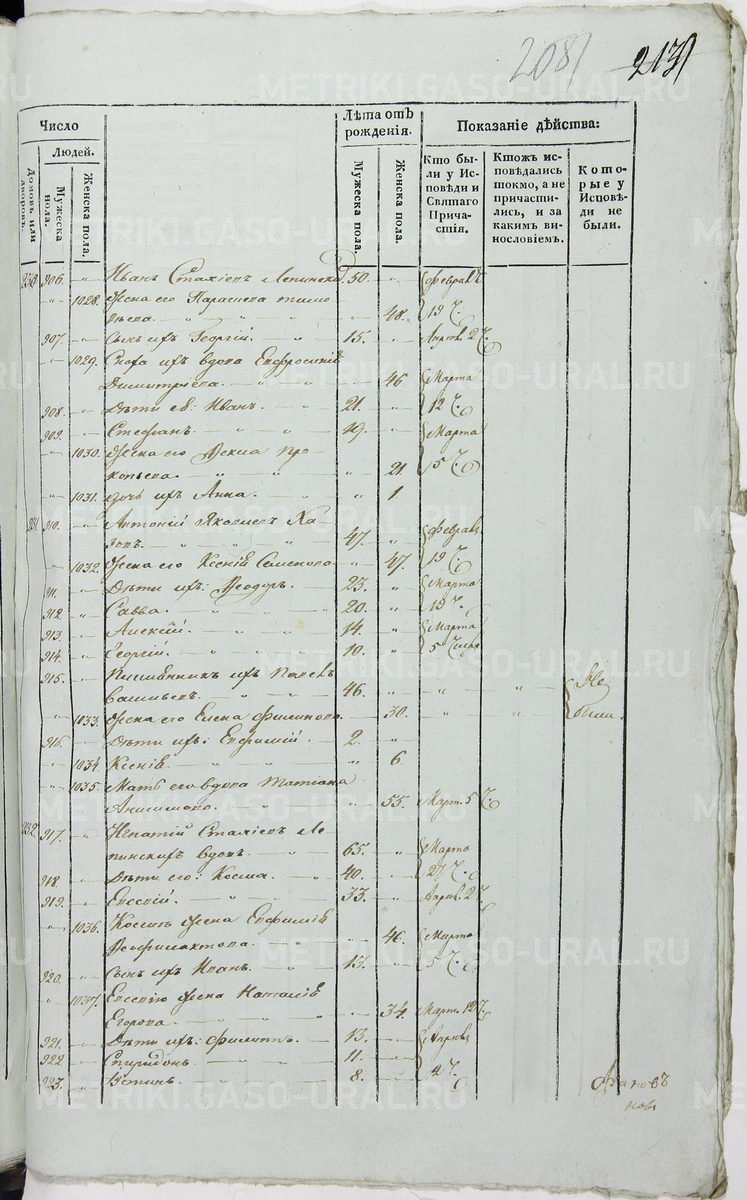 208 213
Число
Лѣта отъ рожденія.
Показаніе дѣйства:
Людей.
Домовъ или дворовъ.
Мужеска пола.
Женска пола.
Мужеска пола.
Женска пола.
Кто бы-
ли у Ис-
повѣди и
Святаго
Прича-
стія.
Ктожъ ис-
повѣдались
токмо, а не
причасти-
лись, и за
какимъ ви-
нословіемъ.
Кото-
рые у
Исповѣ-
ди не
были.
230 906. Иванъ 50. Февраля
1028. Жена его Параскева Тимо
ѳеева. 48. 19 ч.
907. Сынъ ихъ Георгій. 15. Апрѣл. 2 ч.
1029. Сноха ихъ вдова Евфросинія
Димитріева. 46 Марта
908. Дѣти ея: Иванъ. 21. 12 ч.
909. Стефанъ. 19. Марта
1030. Жена его Ѳекла Про
копьева. 21. 5 ч.
1031. дочь ихъ Анна. 1
231. 910. Антоній Яковлевъ Ха
47. Февраля
1032. Жена его Ксенія Семенова 47. 19 ч.
911. Дѣти ихъ: Ѳеодоръ. 23. Марта
912. Савва. 20. 19 ч.
913. Алексій. 14. Марта
914. Георгій. 10. 5 числа
915. ихъ Павелъ
Васильевъ. 46. Не
1033. Жена его Елена Филипова. 30. были.
916. Дѣти ихъ: Евфимій. 2.
1034. Ксенія. 6.
1035. Мать его вдова Татіана
Анисимова. 55. Март. 5 ч.
232. 917. Игнатій
вдовъ. 65. Марта
918. Дѣти его: Косма. 40. 27 ч.
919. Евсевій. 33. Апрѣл. 2 ч.
1036. Космы жена Евфимія
Ѳеофилактова. 46. Марта
920. Сынъ ихъ Иванъ. 13. 5 ч.
1037. Евсевія жена Наталія
Егорова. 34. Март. 12 ч.
921. Дѣти ихъ: Филиппъ. 13. Апрѣля
922. Спиридонъ. 11.
923. Устинъ. 8. 2 ч.
METRIKI.GASO-URAL.RU